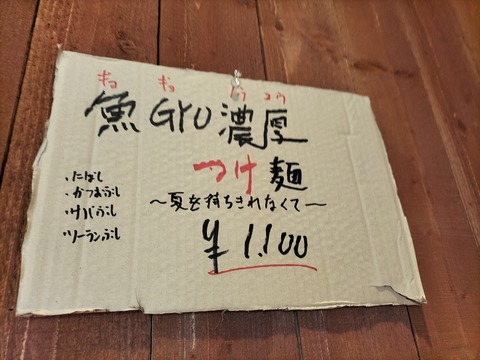 ギョ ギョ のう こう
魚GYO濃厚
つけ麺
～夏を待ちきれなくて～
¥1.100
・にぼし
・かつおぶし
・サバぶし
・ソーランぶし